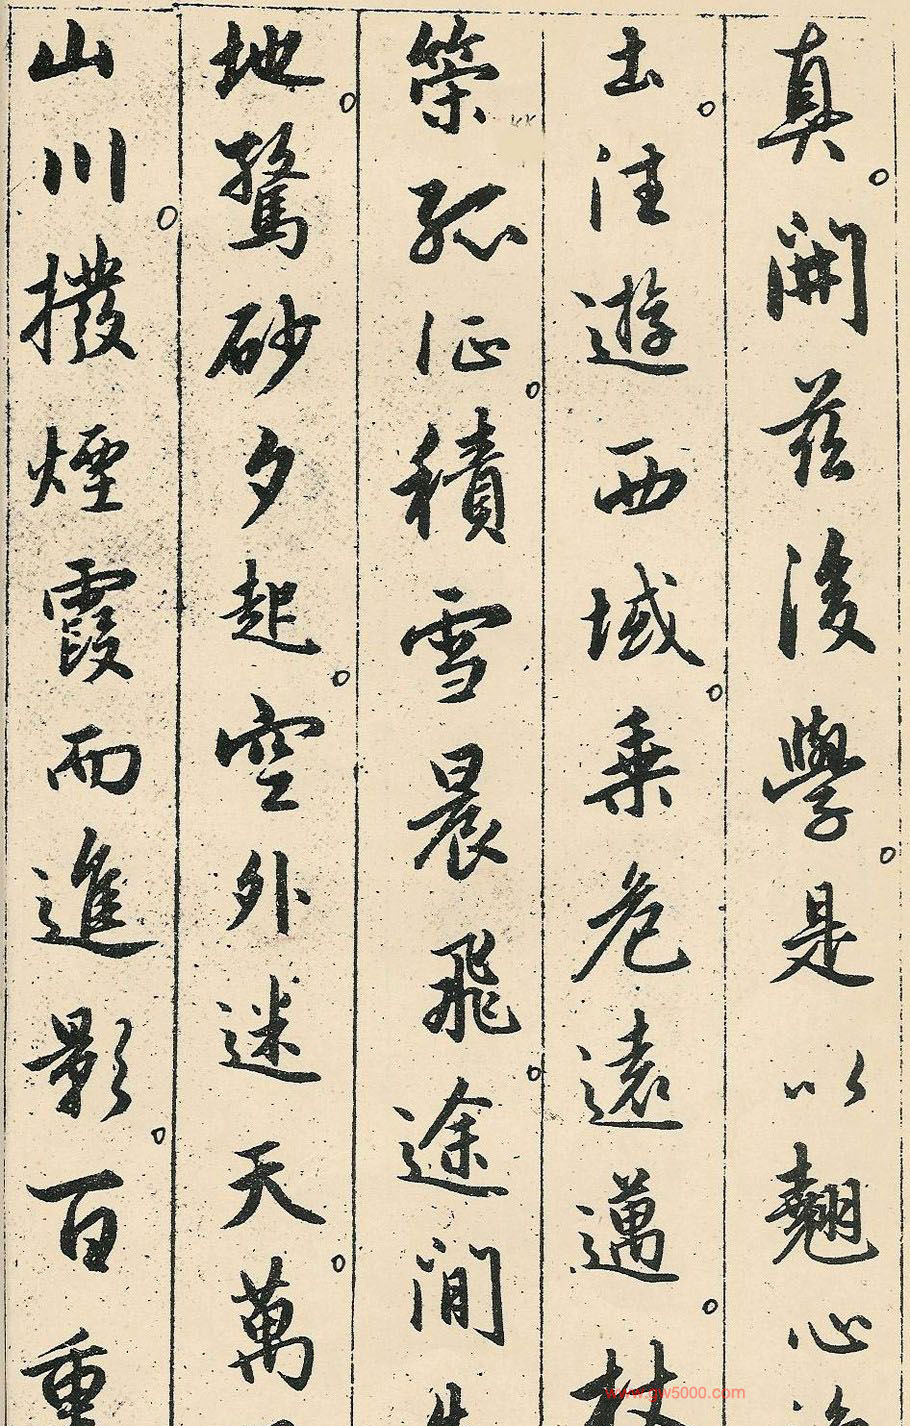 真。開茲後學。是以翹心
土。往遊西域。乘危遠邁。杖
策孤征。積雪晨飛。途閒
地。驚砂夕起。空外迷天。萬
山川。撥煙霞而進影。百重
www.gw5000.com